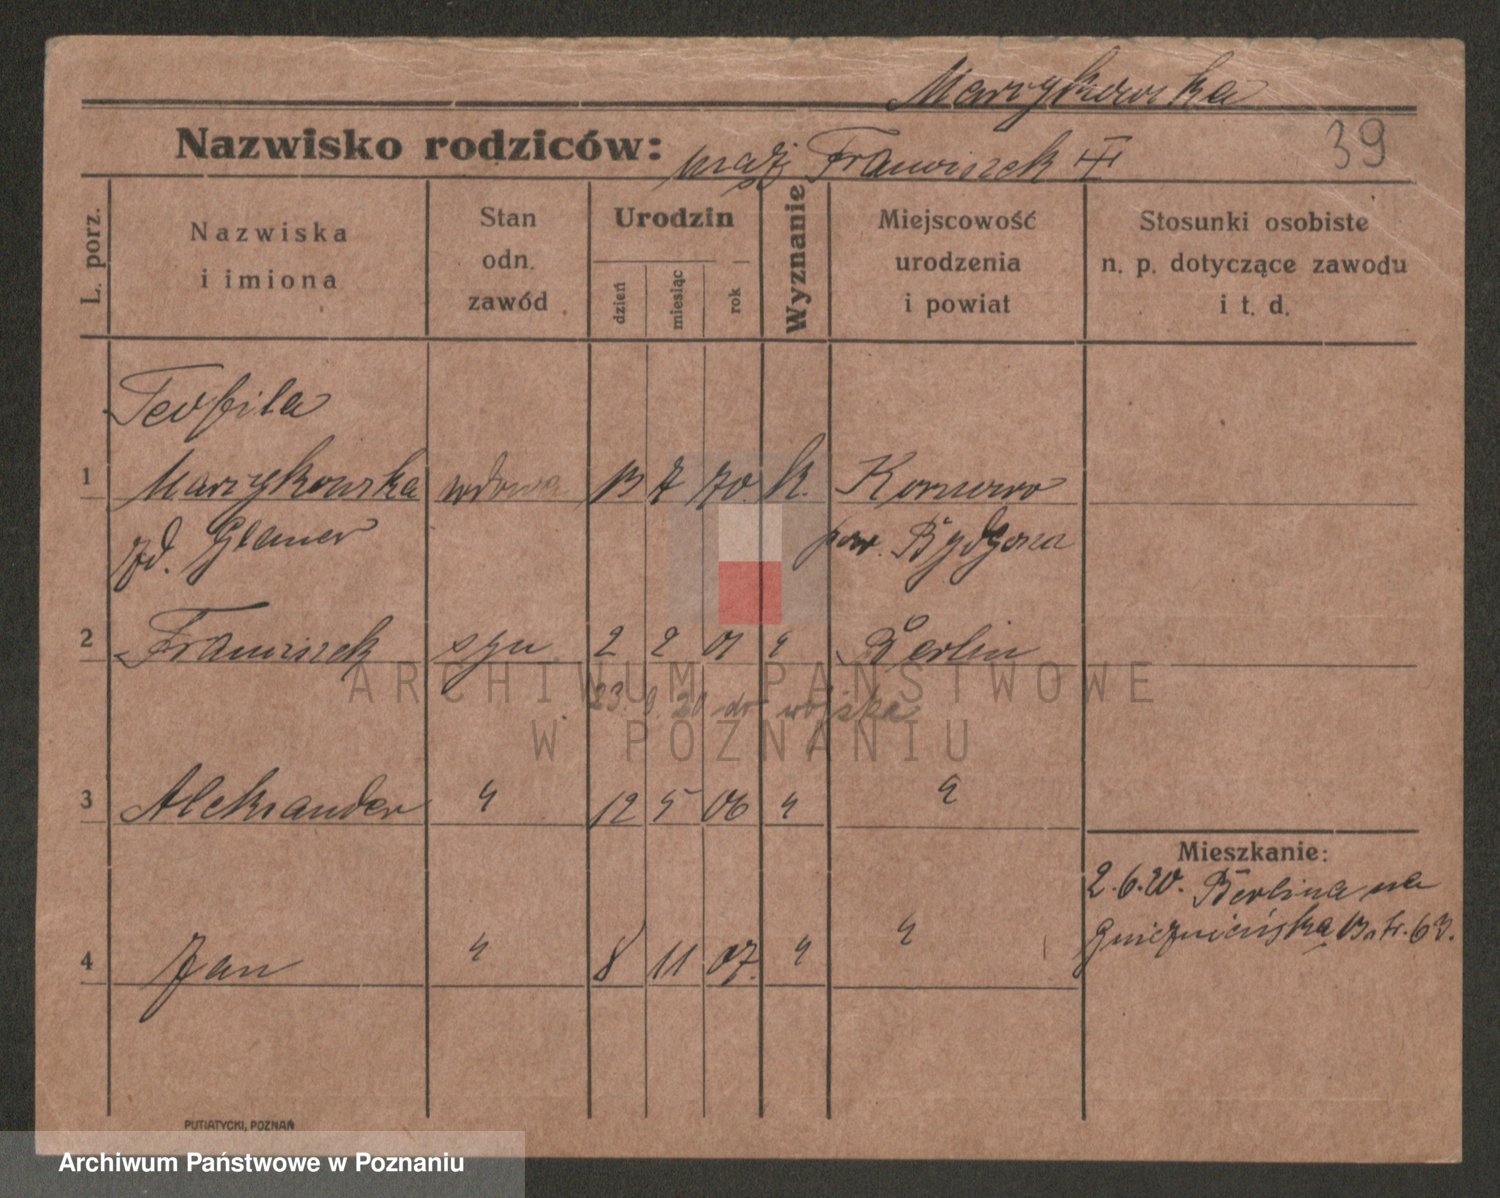 Marzykowska
39
Nazwisko rodziców: mąż Franciszek
L. porz.
Nazwiska
i imiona
Stan
odn.
zawód
Urodzin
dzień
miesiąc
rok
Wyznanie
Miejscowość
urodzenia
i powiat
Stosunki osobiste
n. p. dotyczące zawodu
i t. d.
Teofila
1 Marzykowska wdowa 13 7 70. k.
zd.
pow. Bydgoszcz
2 Franciszek syn 2 2 01 " Berlin
23. 9. 20 do wojska
3 Aleksander " 12 5 06 " "
4 Jan " 8 11 07. " "
Mieszkanie:
2.6.20. Berlina na
Gnieźnieńska 63.
PUTIATYCKI, POZNAŃ
ARCHIWUM PAŃSTWOWE
W POZNANIU
Archiwum Państwowe w Poznaniu